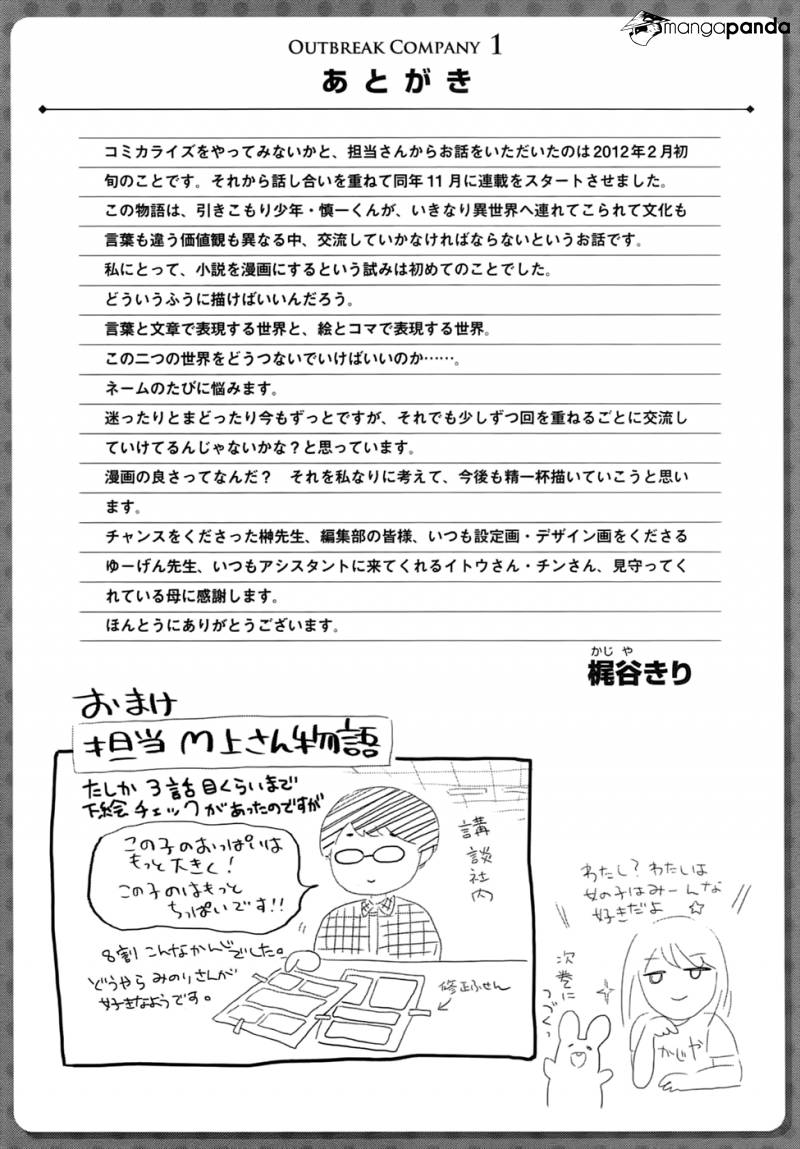 OUTBREAK COMPANY 1
mangapanda
あとがき
コミカライズをやってみないかと、担当さんからお話をいただいたのは2012年2月初
旬のことです。それから話し合いを重ねて同年11月に連載をスタートさせました。
この物語は、引きこもり少年・慎一くんが、いきなり異世界へ連れてこられて文化も
言葉も違う価値観も異なる中、交流していかなければならないというお話です。
私にとって、小説を漫画にするという試みは初めてのことでした。
どういうふうに描けばいいんだろう。
言葉と文章で表現する世界と、絵とコマで表現する世界。
この二つの世界をどうつないでいけばいいのか……。
ネームのたびに悩みます。
迷ったりとまどったり今もずっとですが、それでも少しずつ回を重ねるごとに交流し
ていけてるんじゃないかな？と思っています。
漫画の良さってなんだ？　それを私なりに考えて、今後も精一杯描いていこうと思い
ます。
チャンスをくださった榊先生、編集部の皆様、いつも設定画・デザイン画をくださる
ゆーげん先生、いつもアシスタントに来てくれるイトウさん・チンさん、見守ってく
れている母に感謝します。
ほんとうにありがとうございます。
かじや
梶谷きり
おまけ
担当 M上さん物語
たしか 3話目くらいまで
下絵チェックがあったのですが
この子のおっぱいは
もっと大きく！
この子のはもっと
ちっぱいです！！
講談社内
8割こんなかんじでした。
どうやら みのりさんが
好きなようです。
修正ふせん
わたし？わたしは
女の子はみーんな
好きだよ☆
次巻に
つづくっ
かじや